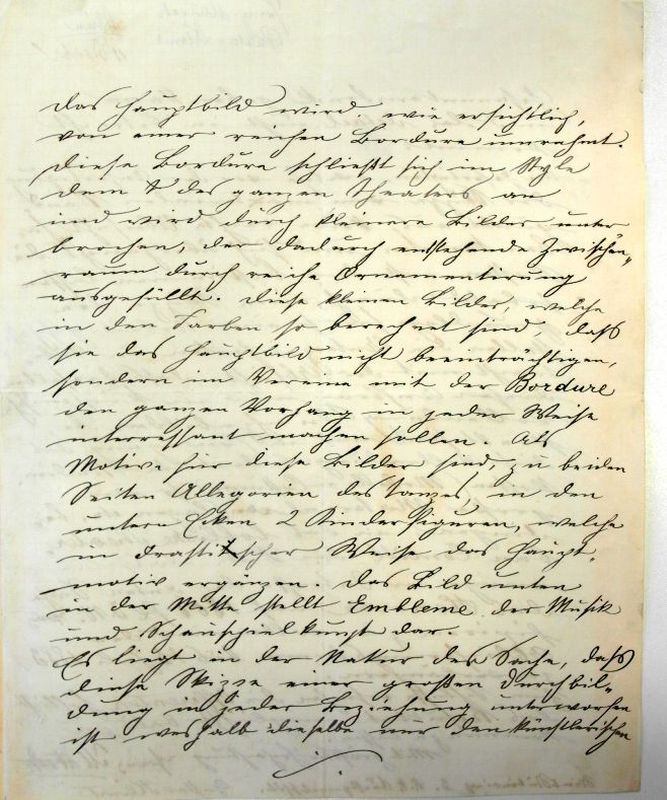 Das Hauptbild wird, wie ersichtlich,
von einer reichen Bordure umrahmt.
Diese Bordure schließt sich im Style
dem des ganzen Theaters an
und wird durch kleinere Bilder unter
brochen, der dadurch entstehende Zwischen„
raum durch reiche Ornamentirung
ausgefüllt. Diese kleinen Bilder, welche
in den Farben so berechnet sind, daß
sie das Hauptbild nicht beeinträchtigen,
sondern im Vereine mit der Bordure
den ganzen Vorhang in jeder Weise
interressant machen sollen. Als
Motive für diese Bilder sind, zu beiden
Seiten Allegorien des Tanzes, in den
untern Ecken 2 Kinderfiguren, welche
in drastischer Weise das Haupt„
motiv ergänzen. Das Bild unten
in der Mitte stellt Embleme der Musik
und Schauspielkunst dar.
Es liegt in der Natur der Sache, daß
diese Skizze einer großen Durchbil„
dung in jeder Beziehung unterworfen
ist weshalb dieselbe nur den künstlerischen